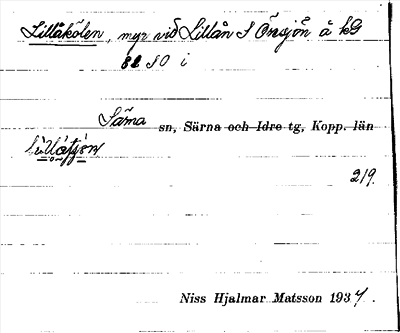 Lillåkölen, myr vid Lillån S Önsjön å kG
82 SO i
Särna sn, Särna och Idre tg, Kopp. län
219.
Niss Hjalmar Matsson 1937.